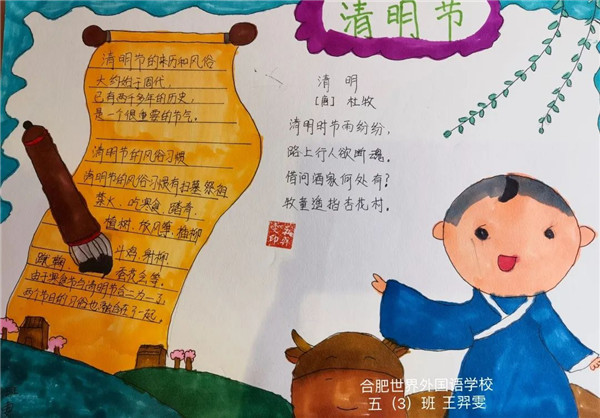 清明节
清明节的来历和风俗
大约始于周代，
已有两千多年的历史，
是一个很重要的节气。
清明节的风俗习惯
清明节的风俗习惯有扫墓祭祖
禁火、吃寒食、踏青、
植树、放风筝、插柳
蹴鞠、斗鸡、射柳
蚕花会等。
由于寒食节与清明节合二为一了
两个节日的习俗也融合在了一起。
清明
【唐】杜牧
清明时节雨纷纷，
路上行人欲断魂。
借问酒家何处有？
牧童遥指杏花村。
合肥世界外国语学校
五（3）班 王羿雯